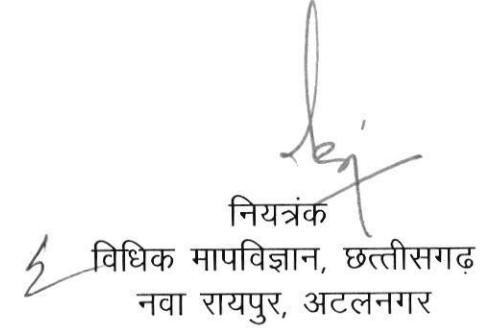 नियत्रंक
विधिक मापविज्ञान, छत्तीसगढ़
नवा रायपुर, अटलनगर